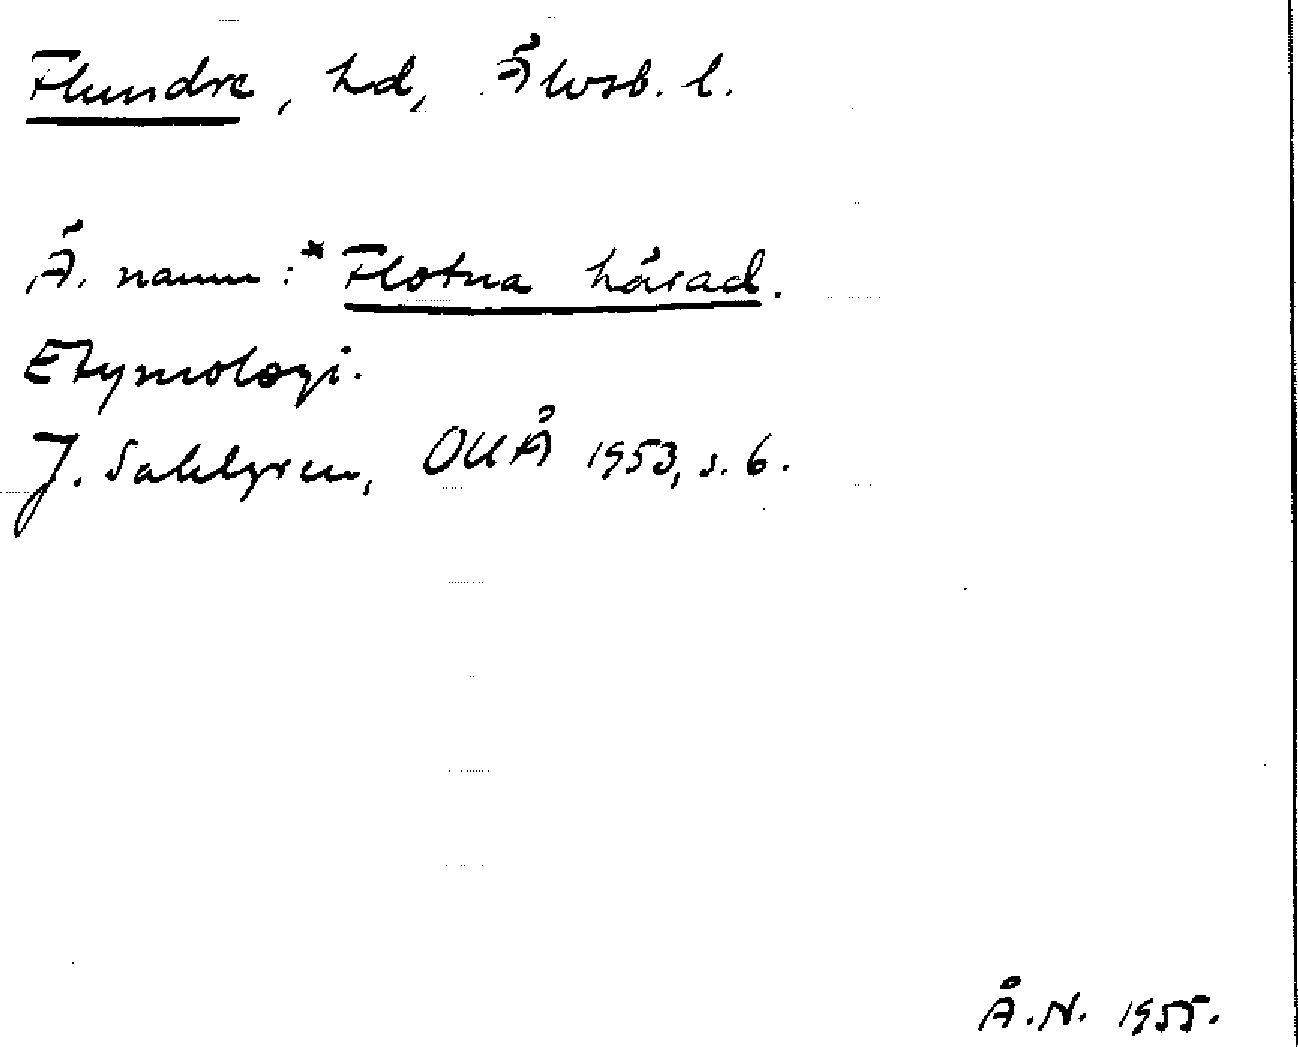 Flundre, hd, Älvsb. l.
Ä. namn: *Flotna härad.
Etymologi.
J. Sahlgren, OUÅ 1953, s. 6.
Å.N. 1955.